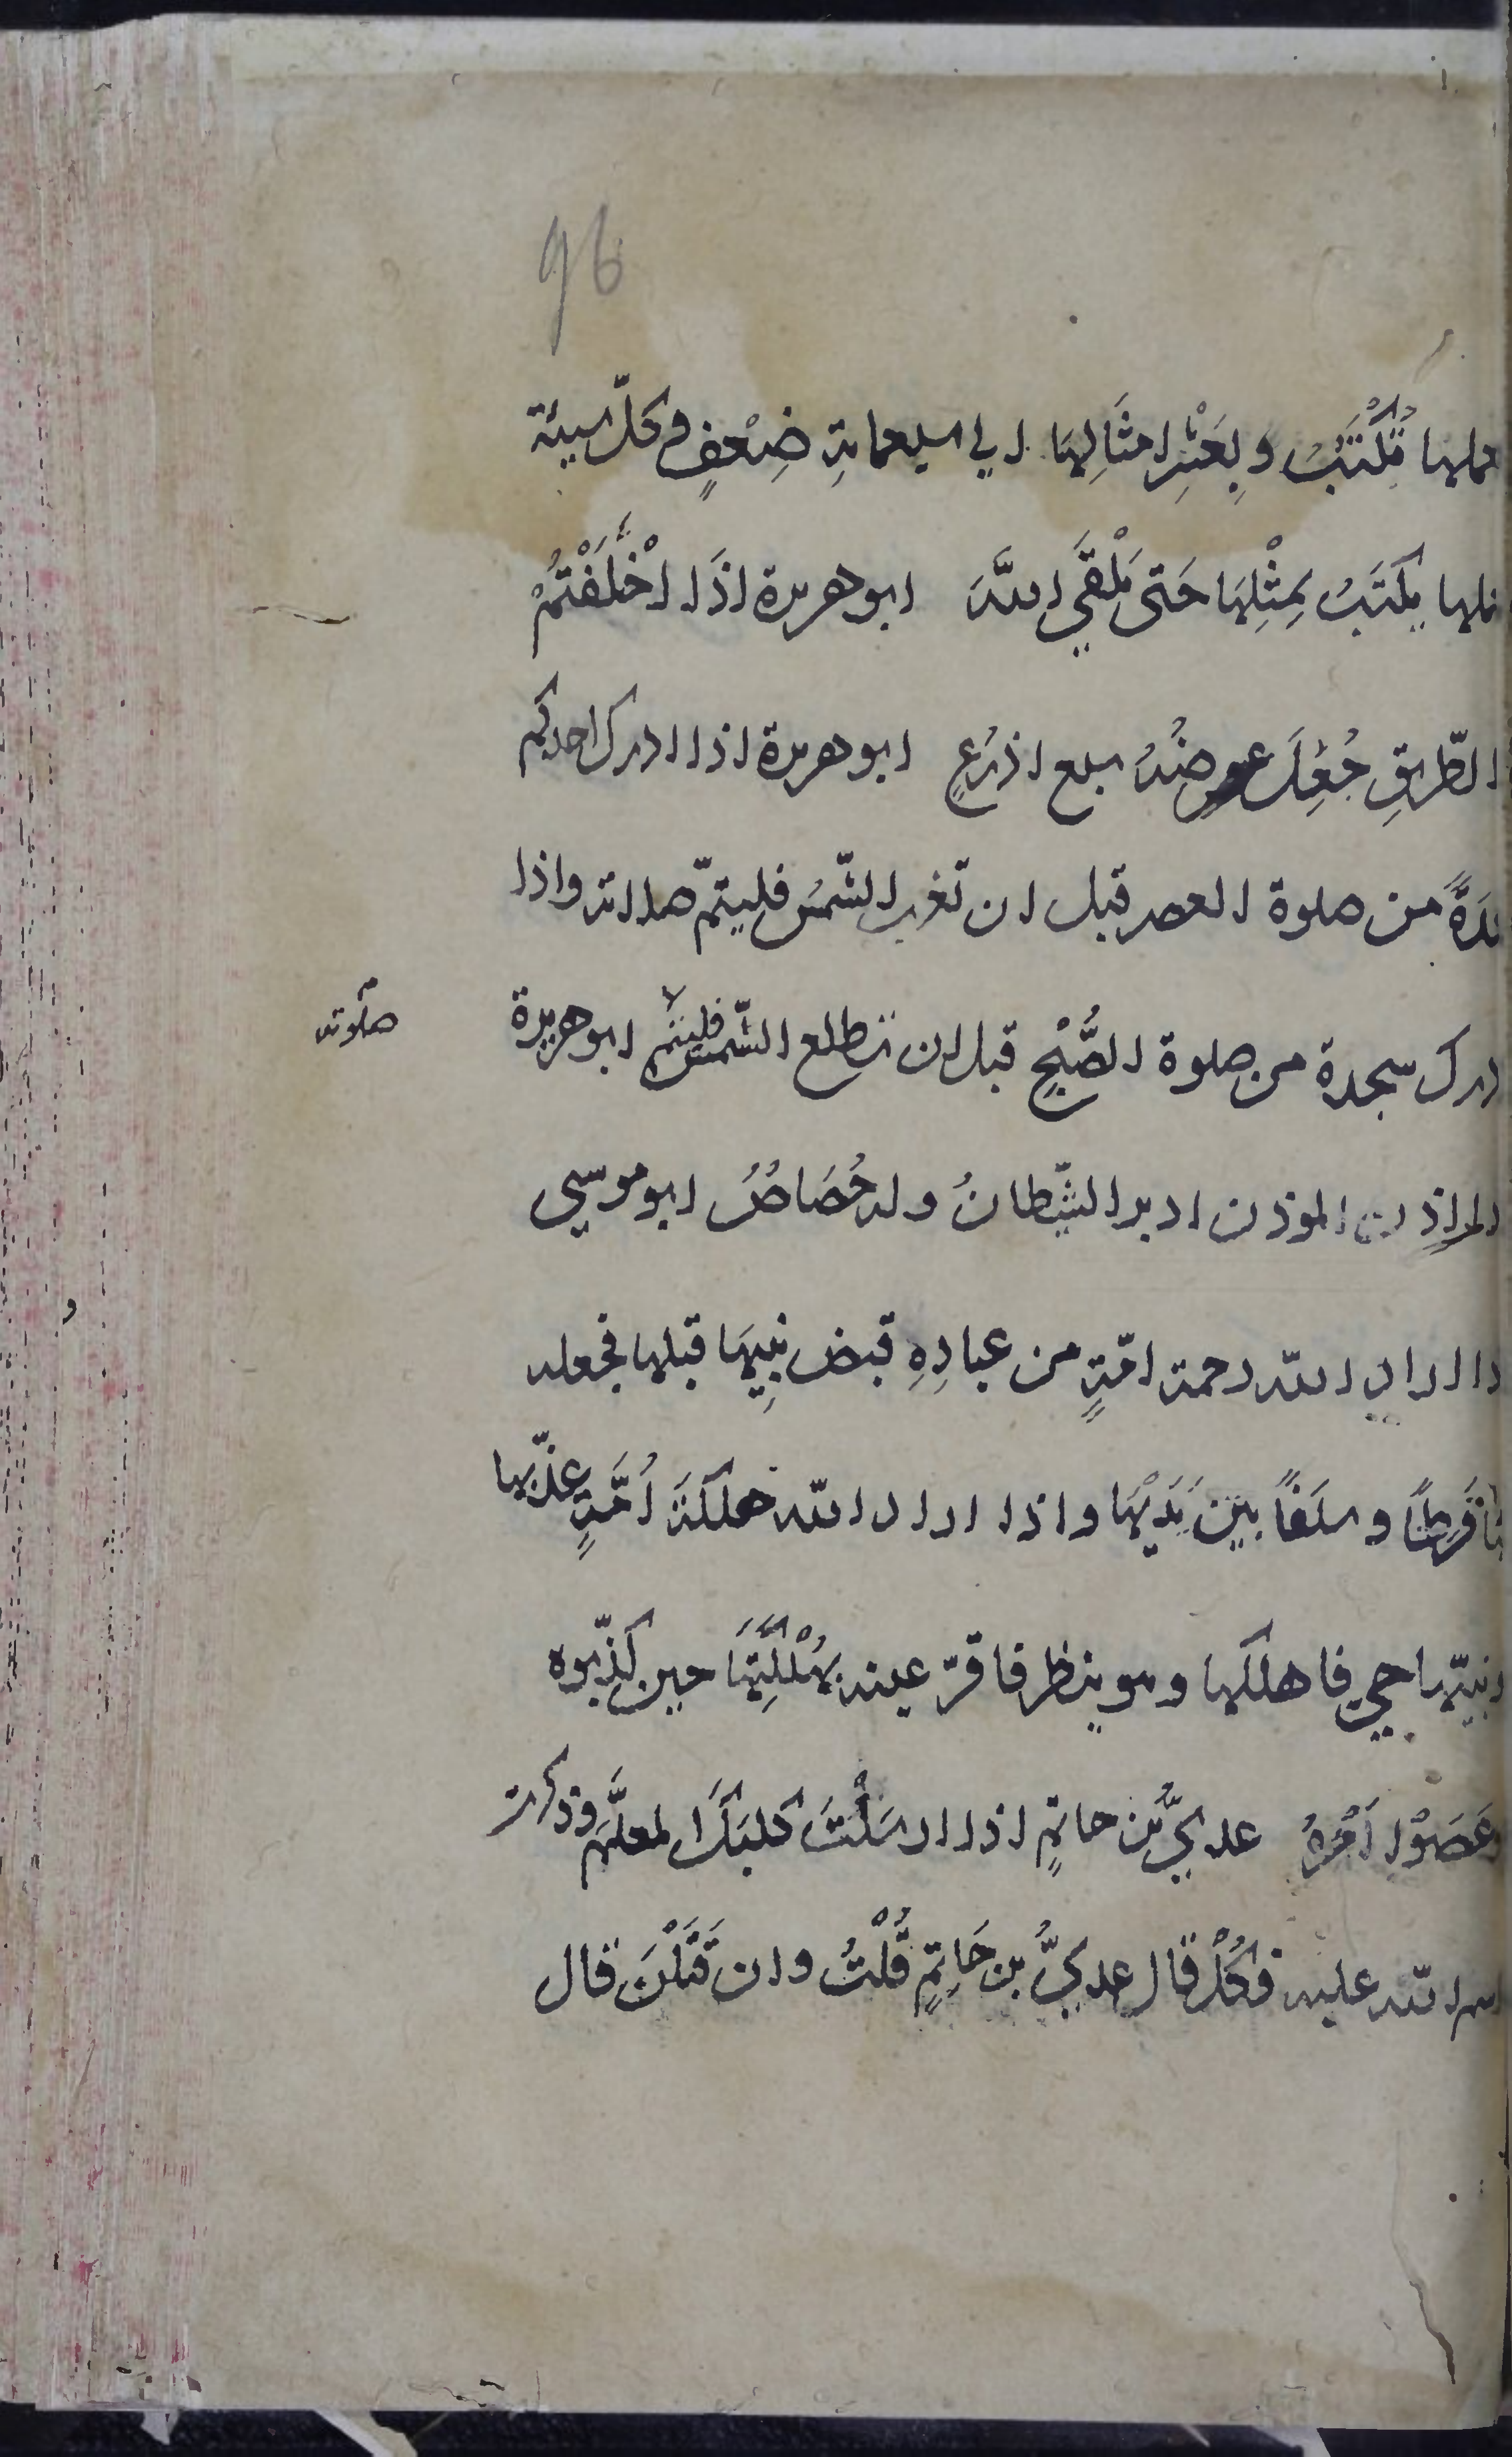 96
عملها تُكْتَبُ و بِعَشْرِ امثَالِهَا الي سبعمايةِ ضِعْفٍ وكلّ سيئة
يكتَبُ بِمِثْلِهَا حَتى يَلْقَي اللهَ ابو هريرة اذَا اخْتَلَفْتُمْ
الطّريقِ جُعِلَ عرضُهُ سبع اذرُعٍ ابو هريرة اذا ادرك احدكم
سجدَةً من صلوة العصر قبل ان تغرب الشّمسُ فليتمّ صلاته واذا
ادرك سجدة من صلوة الصُّبْحِ قبل ان تطلع الشّمسُ فليتم ابو هريرة
صلوته
المؤذن ادبر الشّيطانُ وله حُصَاصٌ ابو موسي
اذا اراد الله رحمة امّةٍ من عبادِهِ قبض نبِيهَا قبلها فجعله
لها فَرَطاً و سلَفاً بين يَدَيْهَا واذا اراد الله هلكَةَ اُمَّةٍ عذّبها
ونبيّها حي فاهلكها وهو ينظر فاقرّ عينه بهُلْكَتِهَا حين كذّبوه
وعَصَوْا اَمْرهُ عدِيُّ بن حاتمٍ اذا ارسَلْتَ كلبَكَ المعلَّم وذكرت
اسم الله عليه فكُلْ قال عدِيُّ بن حَاتِمٍ قُلْتُ وان قَتَلْنَ قال